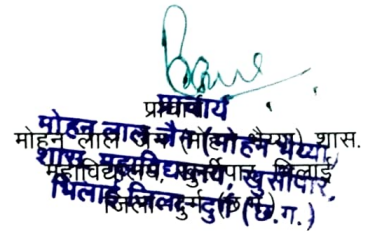 प्राचार्य
मोहन लाल जैन (मोहन भैय्या) शास.
महाविद्यालय, खुर्सीपार, भिलाई
जिला दुर्ग (छ.ग.)
प्राचार्य
मोहन लाल जैन (मोहन भैय्या)
शास. महाविद्यालय, खुर्सीपार,
भिलाई, जिला-दुर्ग (छ.ग.)